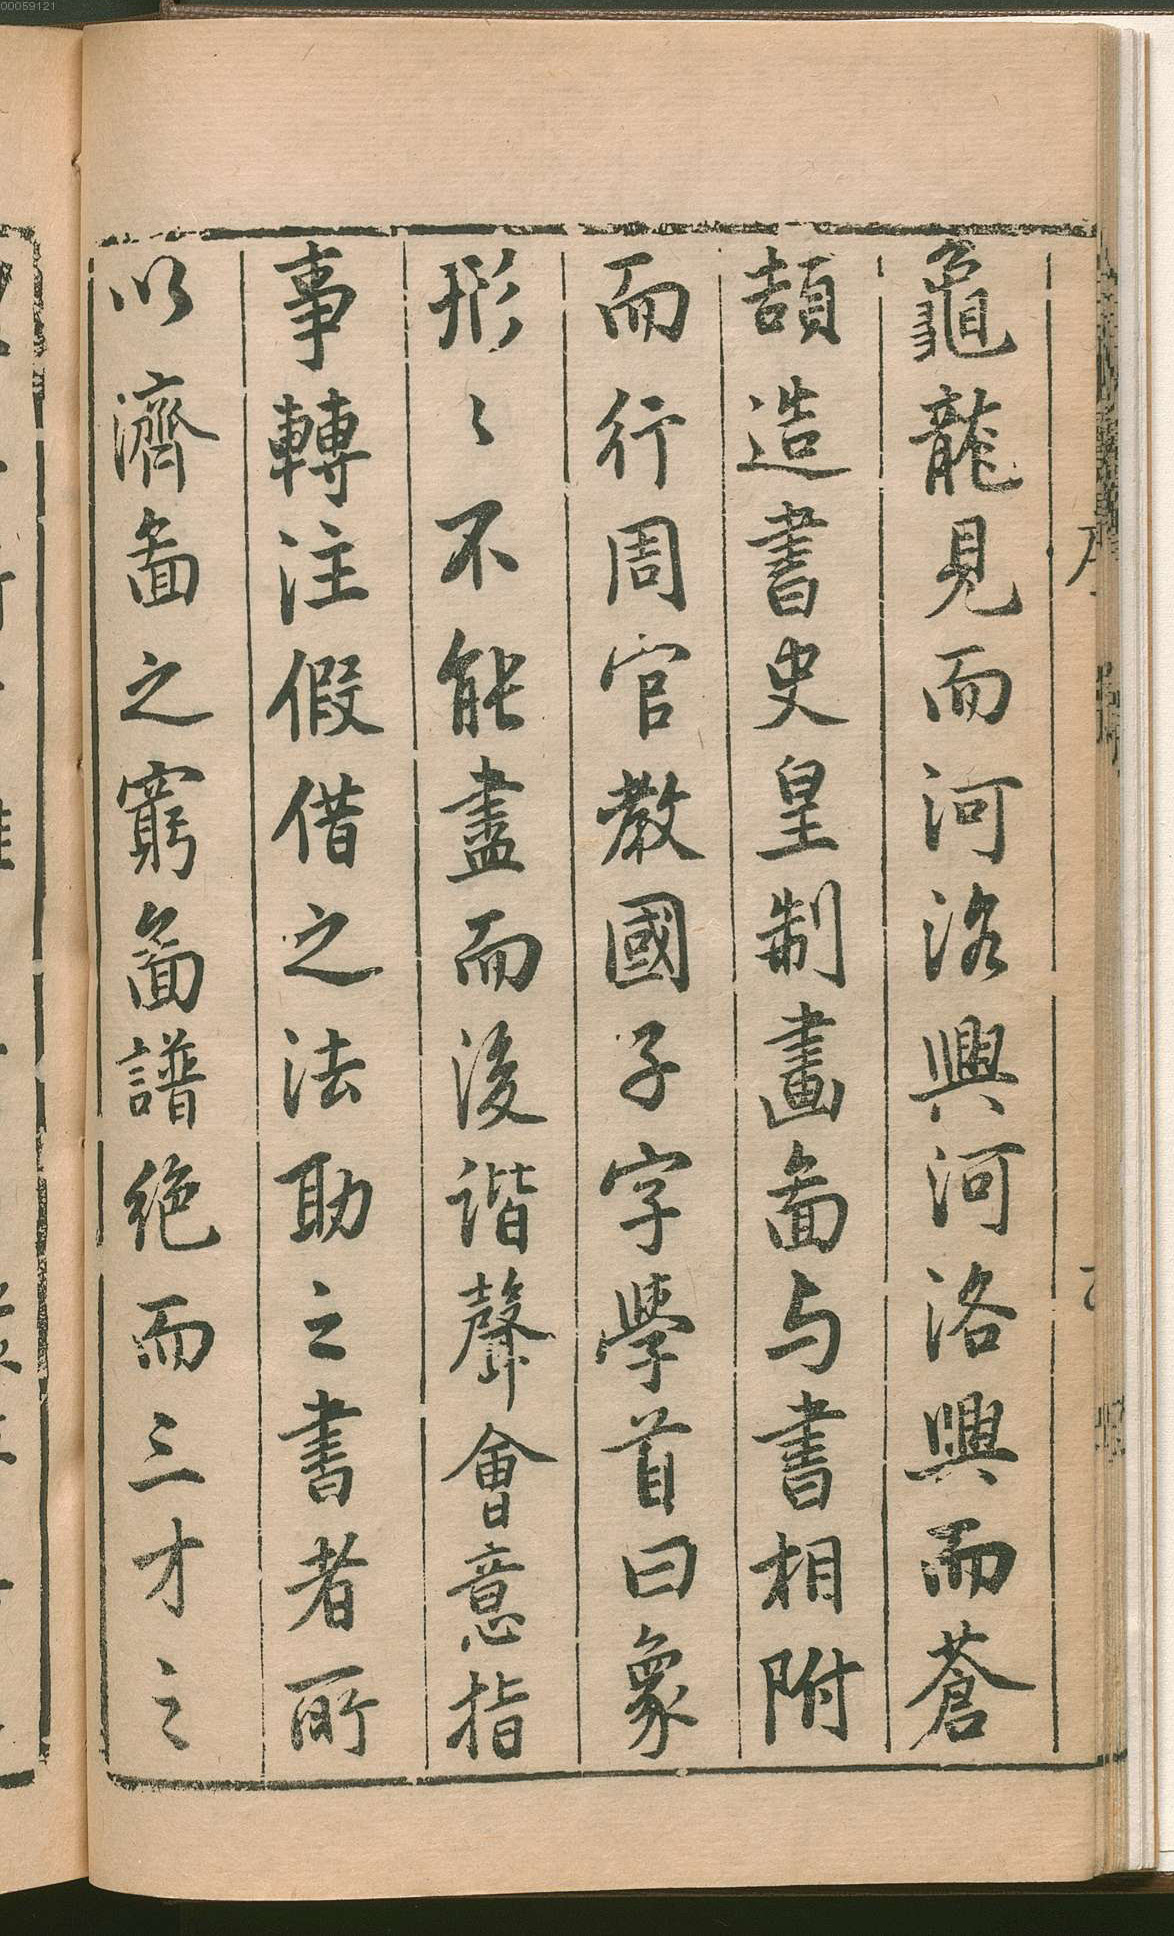 00059121
龜龍見而河洛興河洛興而蒼
頡造書史皇制畫啚与書相附
而行周官教國子字學首曰象
形〻不能盡而後諧聲會意指
事轉注假借之法助之書者所
以濟啚之窮啚譜絶而三才之